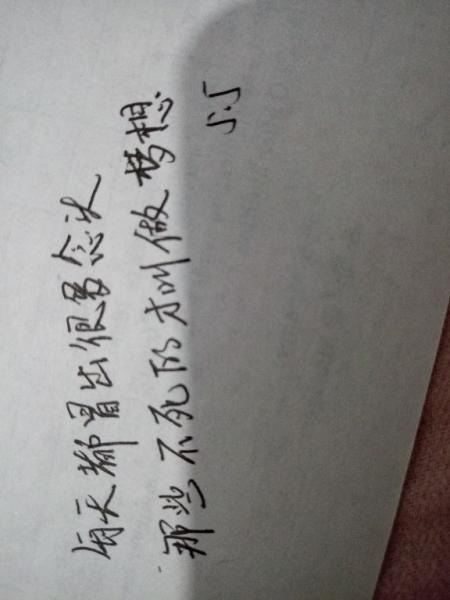 每天都冒出很多念头
那些不死的才叫做梦想
5.5